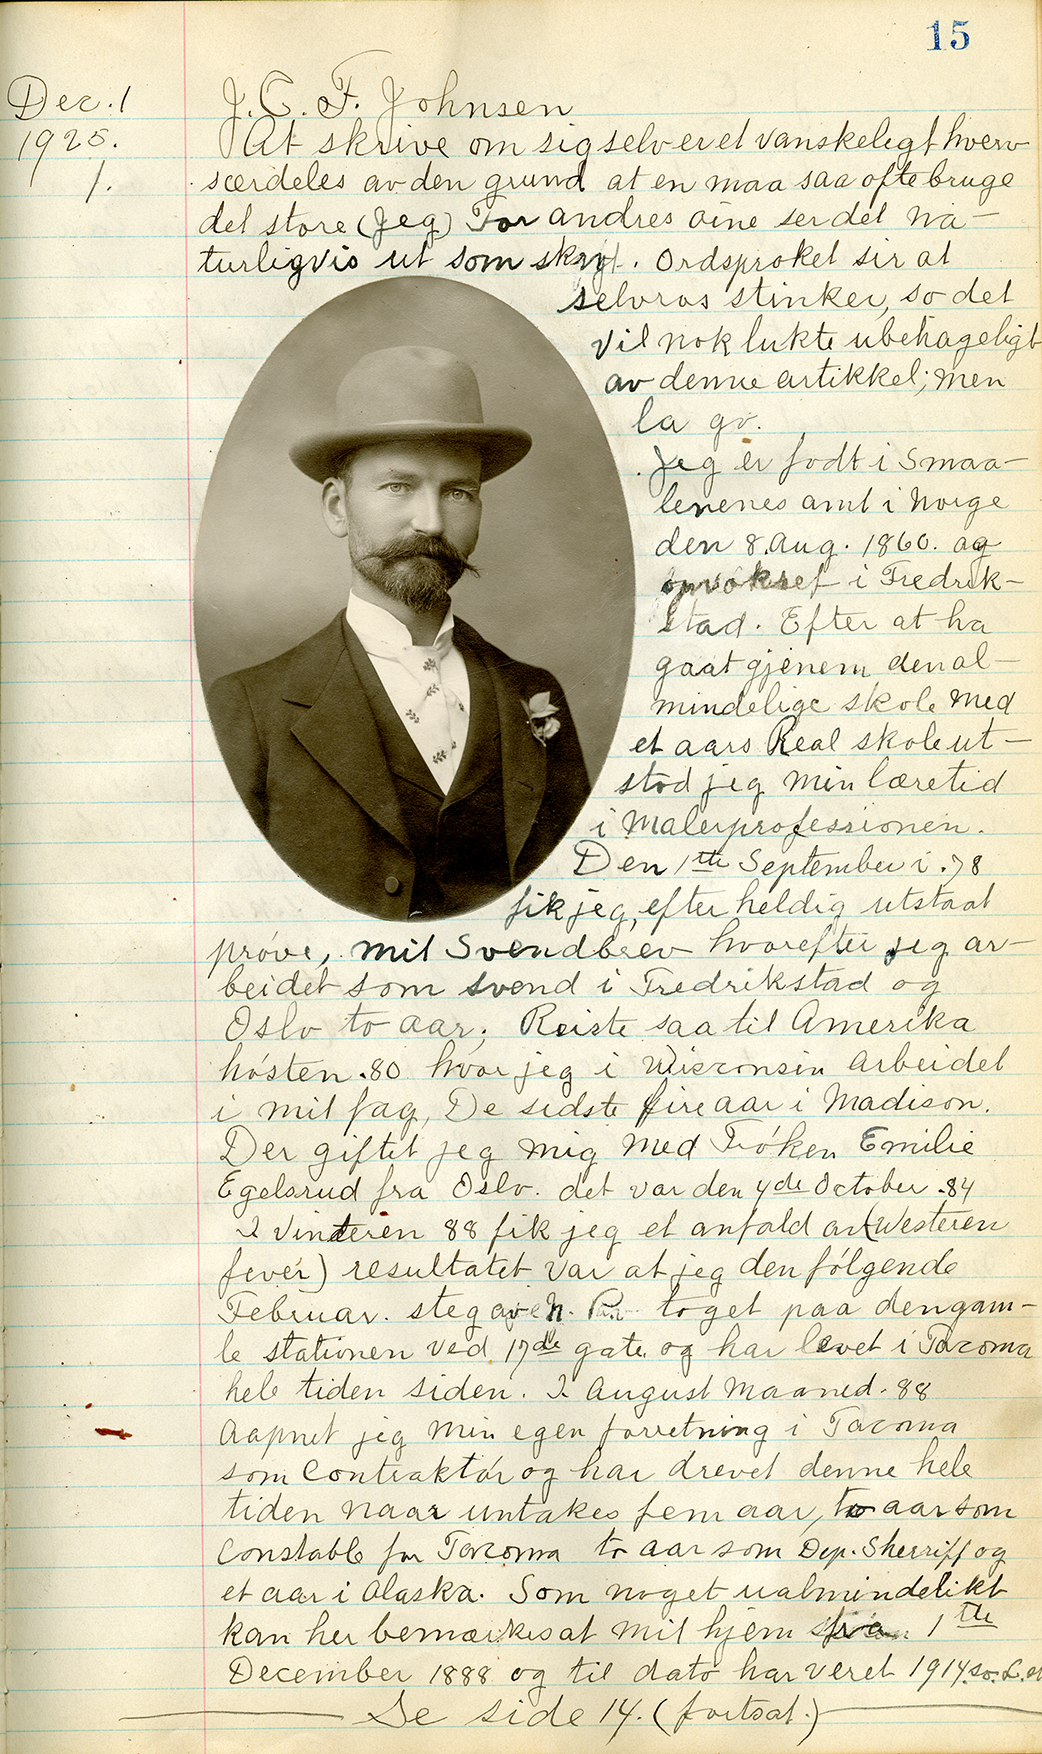 15
Dec. 1
1925.
1.
J. C. F. Johnsen
At skrive om sig selv er et vanskeligt hverv
særdeles av den grund at en maa saa ofte bruge
det store (Jeg) For andres øine ser det na-
turligvis ut som skryt. Ordsproket sir at
selvros stinker, so det
vil nok lukte ubehageligt
av denne artikkel; men
la go.
Jeg er født i Smaa-
lenenes amt i Norge
den 8. Aug. 1860. og
opvokset i Fredrik-
stad. Efter at ha
gaat gjenem den al-
mindelige skole med
et aars Real skole ut-
stod jeg min læretid
i Malerprofessionen.
Den 1ste September i .78
fik jeg, efter heldig utstaat
prøve, mit Svendbrev hvorefter jeg ar-
beidet som svend i Fredrikstad og
Oslo to aar; Reiste saa til Amerika
høsten .80 hvor jeg i Wisconsin arbeidet
i mit fag, De sidste fire aar i Madison.
Der giftet jeg mig med Frøken Emilie
Egelsrud fra Oslo. det var den 4de October .84
I Vinteren 88 fik jeg et anfald av (Westeren
fever) resultatet var at jeg den følgende
Februar. steg av N. P. toget paa den gam-
le stationen ved 17de gate og har levet i Tacoma
hele tiden siden. I August Maaned .88
Aapnet jeg min egen forretning i Tacoma
som Contraktør og har drevet denne hele
tiden naar untakes fem aar, to aar som
Constable for Tacoma to aar som Dep. Sherriff og
et aar i Alaska. Som noget ualmindelikt
kan her bemærkes at mit hjem fra 1ste
December 1888 og til dato har veret 1914 so. L. st
Se side 14. (fortsat.)